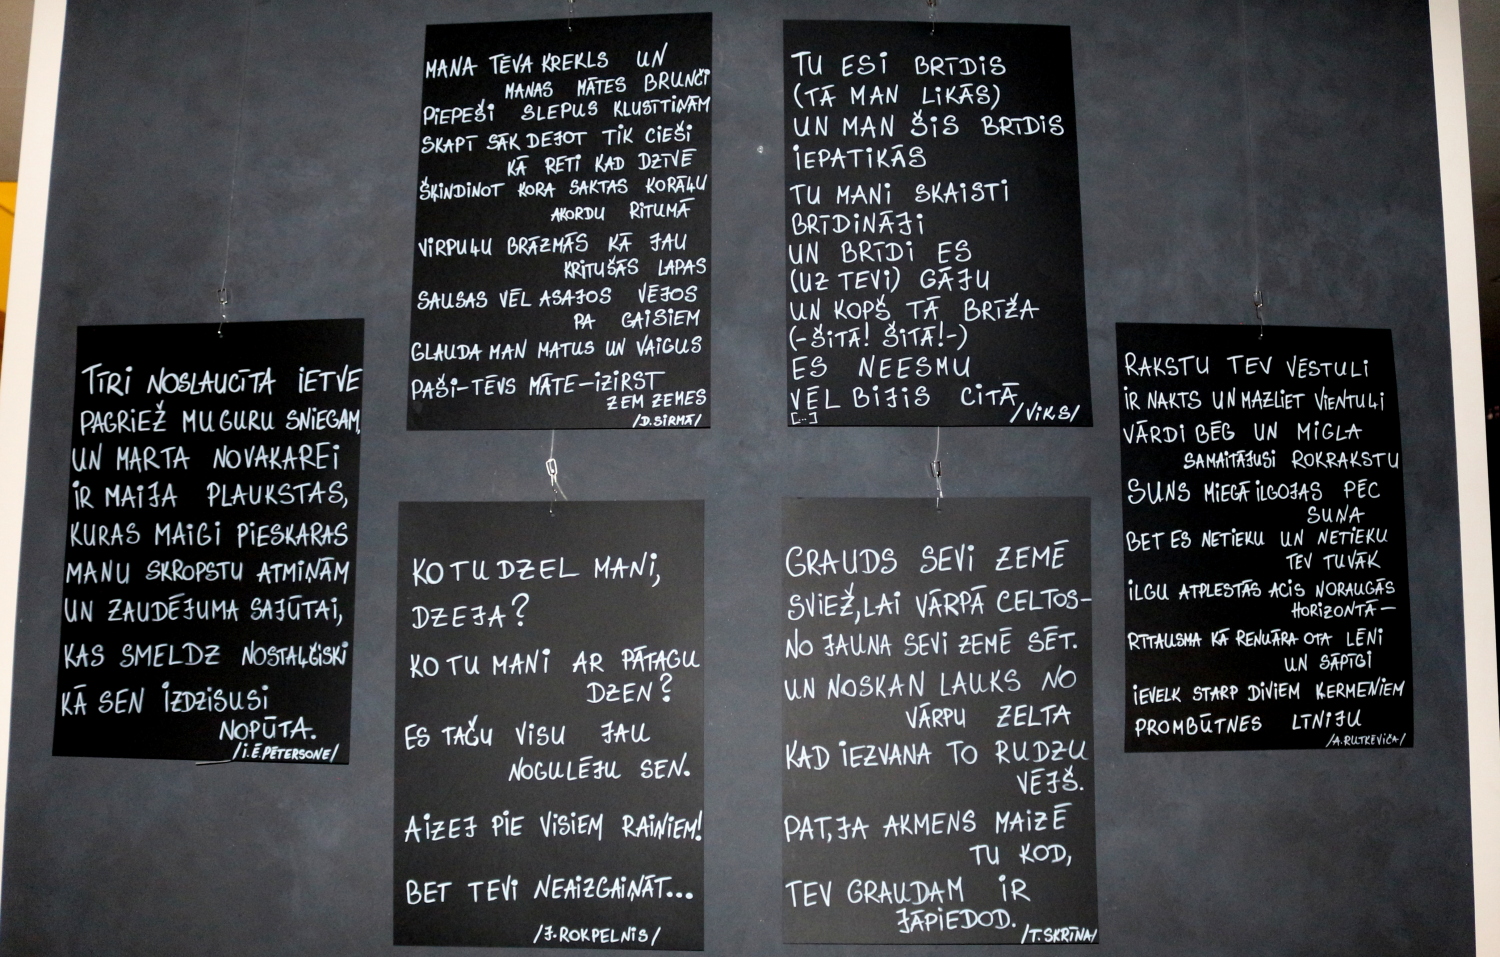 TĪRI NOSLAUCĪTA IETVE
PAGRIEŽ MUGURU SNIEGAM,
UN MARTA NOVAKAREI
IR MAIJA PLAUKSTAS,
KURAS MAIGI PIESKARAS
MANU SKROPSTU ATMIŅĀM
UN ZAUDĒJUMA SAJŪTAI,
KAS SMELDZ NOSTALĢISKI
KĀ SEN IZDZISUSI
NOPŪTA.
/I.Ē.PĒTERSONE/
MANA TĒVA KREKLS UN
MANAS MĀTES BRUNČI
PIEPEŠI SLEPUS KLUSĪTIŅĀM
SKAPĪ SĀK DEJOT TIK CIEŠI
KĀ RETI KAD DZĪVĒ
ŠĶINDINOT KORA SAKTAS KORĀĻU
AKORDU RITUMĀ
VIRPUĻU BRĀZMĀS KĀ JAU
KRITUŠĀS LAPAS
SAUSAS VĒL ASAJOS VĒJOS
PA GAISIEM
GLAUDA MAN MATUS UN VAIGUS
PAŠI-TĒVS MĀTE-IZIRST
ZEM ZEMES
/D.SIRMĀ/
KO TU DZEL MANI,
DZEJA?
KO TU MANI AR PĀTAGU
DZEN?
ES TAČU VISU JAU
NOGULĒJU SEN.
AIZEJ PIE VISIEM RAIŅIEM!
BET TEVI NEAIZGAIŅĀT...
/J.ROKPELNIS/
TU ESI BRĪDIS
(TĀ MAN LIKĀS)
UN MAN ŠIS BRĪDIS
IEPATIKĀS
TU MANI SKAISTI
BRĪDINĀJI
UN BRĪDI ES
(UZ TEVI) GĀJU
UN KOPŠ TĀ BRĪŽA
(-ŠITĀ! ŠITĀ!-)
ES NEESMU
VĒL BIJIS CITĀ
[...]
/VIKS/
GRAUDS SEVI ZEMĒ
SVIEŽ, LAI VĀRPĀ CELTOS-
NO JAUNA SEVI ZEMĒ SĒT.
UN NOSKAN LAUKS NO
VĀRPU ZELTA
KAD IEZVANA TO RUDZU
VĒJŠ.
PAT, JA AKMENS MAIZĒ
TU KOD,
TEV GRAUDAM IR
JĀPIEDOD.
/T.SKRĪNA/
RAKSTU TEV VĒSTULI
IR NAKTS UN MAZLIET VIENTUĻI
VĀRDI BĒG UN MIGLA
SAMAITĀJUSI ROKRAKSTU
SUNS MIEGĀ ILGOJAS PĒC
SUŅA
BET ES NETIEKU UN NETIEKU
TEV TUVĀK
ILGU ATPLESTĀS ACIS NORAUGĀS
HORIZONTĀ—
RĪTAUSMA KĀ RENUĀRA OTA LĒNI
UN SĀPĪGI
IEVELK STARP DIVIEM ĶERMEŅIEM
PROMBŪTNES LĪNIJU
/A.RUTKEVIČA/